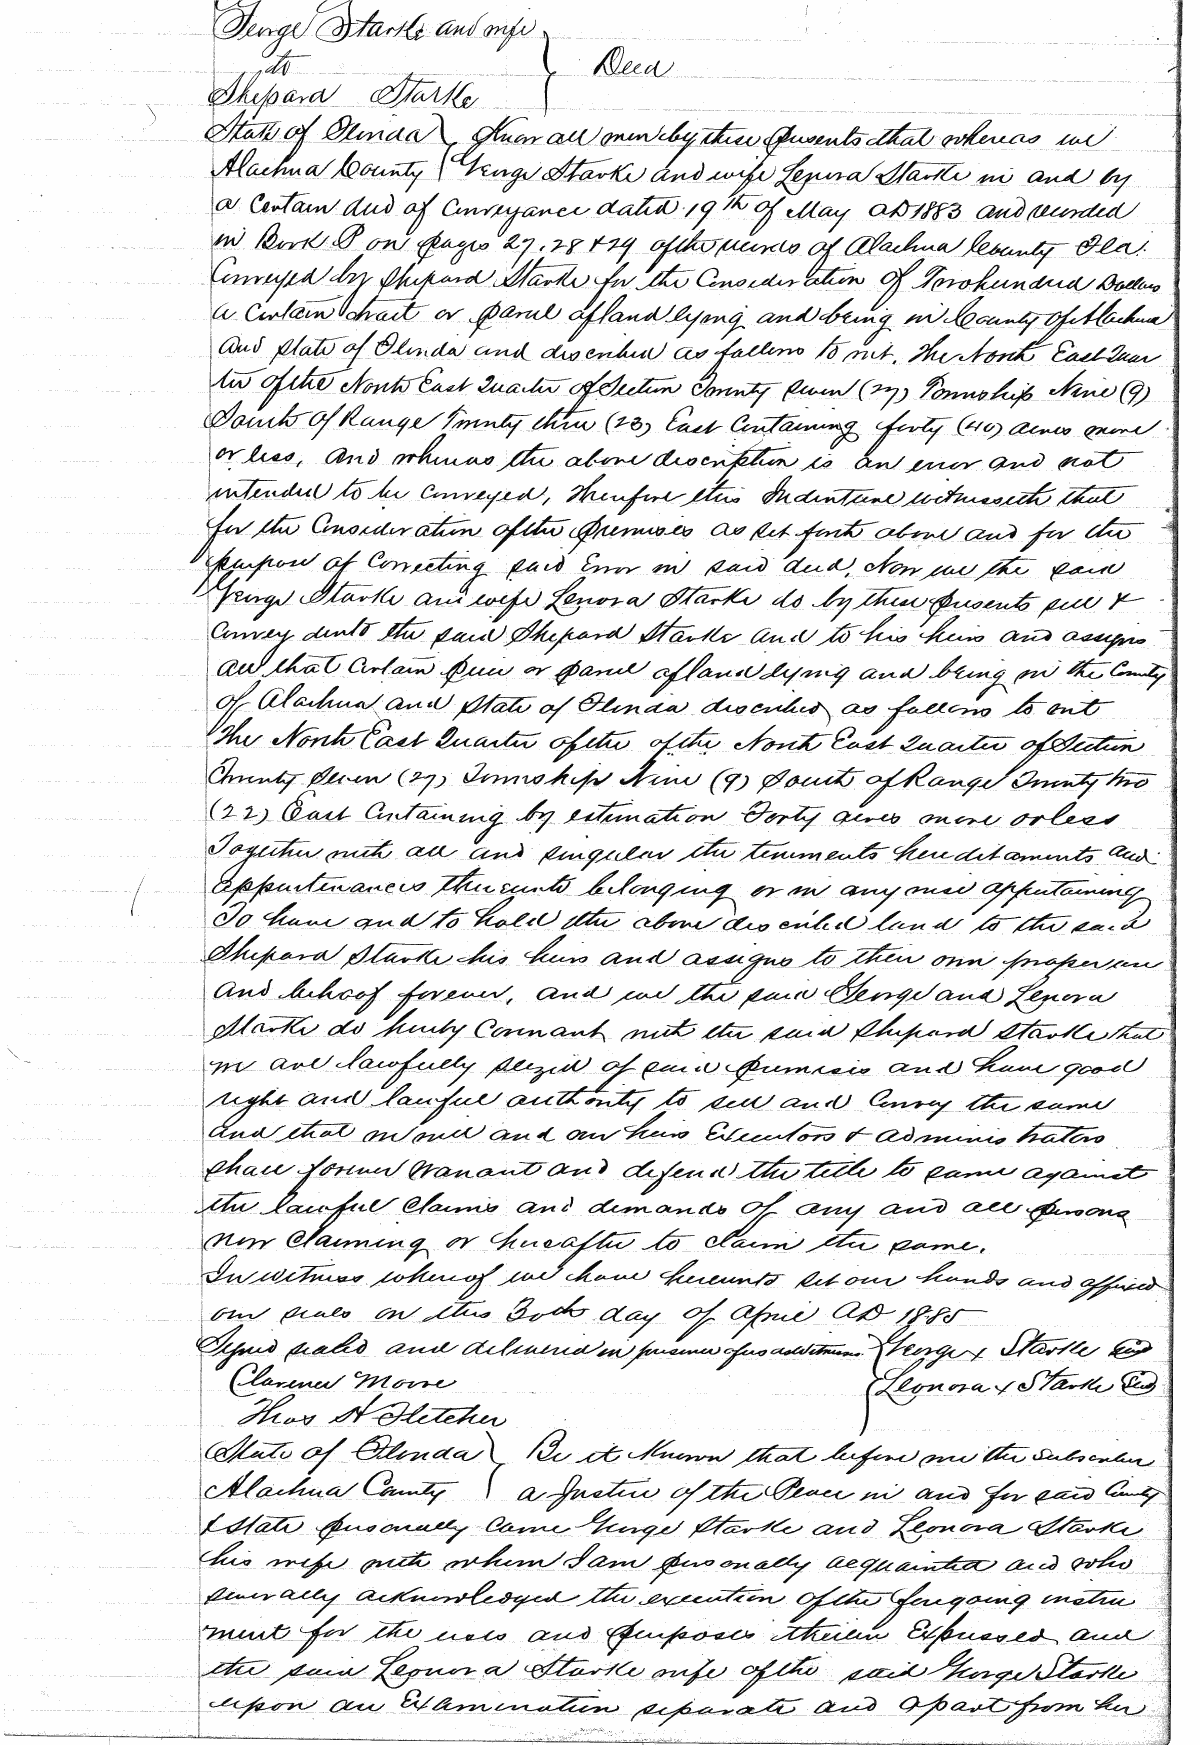 George Starke and wife
to
Deed
Shepard Starke
State of Florida } Know all men by these presents that whereas we
Alachua County { George Starke and wife Lenora Starke in and by
a Certain deed of Conveyance dated 19th of May AD 1883 and recorded
in Book P on pages 27, 28 & 29 of the records of Alachua County Fla.
Conveyed by Shepard Starke for the Consideration of Two hundred Dollars
a Certain tract or parcel of land lying and being in County of Alachua
and State of Florida and described as follows to wit. The North East Quar
ter of the North East Quarter of Section Twenty Seven (27) Township Nine (9)
South of Range Twenty three (23) East Containing forty (40) acres more
or less, and whereas the above description is an error and not
intended to be Conveyed, Therefore this Indenture witnesseth that
for the Consideration of the premises as set forth above and for the
purpose of Correcting said Error in said deed. Now we the said
George Starke and wife Lenora Starke do by these presents sell &
Convey unto the said Shepard Starke and to his heirs and assigns
all that Certain piece or parcel of land lying and being in the County
of Alachua and State of Florida described as follows to wit
The North East Quarter of the of the North East Quarter of Section
Twenty Seven (27) Township Nine (9) South of Range Twenty two
(22) East Containing by estimation Forty acres more or less
Together with all and singular the tenements hereditaments and
appurtenances thereunto belonging or in any wise appertaining
To have and to hold the above described land to the said
Shepard Starke his heirs and assigns to their own proper use
and behoof forever, and we the said George and Lenora
Starke do hereby Covenant with the said Shepard Starke that
we are lawfully siezed of said premises and have good
right and lawful authority to sell and Convey the same
and that we will and our heirs Executors & administrators
shall forever warrant and defend the title to same against
the lawful Claims and demands of any and all persons
now Claiming or hereafter to claim the same.
In witness whereof we have hereunto set our hands and affixed
our seals on this 30th day of April AD 1885
Signed sealed and delivered in presence of us as witnesses { George x Starke Seal
Clarence Moore { Leonora x Starke Seal
Thos H Fletcher
State of Florida } Be it Known that before me the subscriber
Alachua County } a Justice of the Peace in and for said County
& State personally Came George Starke and Leonora Starke
his wife with whom I am personally acquainted and who
severally acknowledged the execution of the foregoing instru
ment for the uses and purposes therein Expressed and
the said Leonora Starke wife of the said George Starke
upon an Examination separate and apart from her